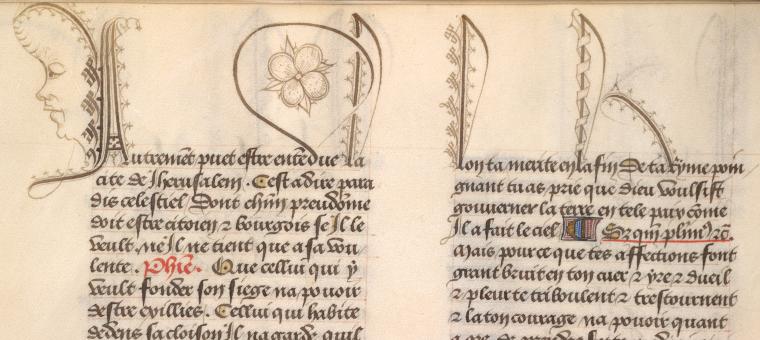 Autrement puet estre entendue la
cite de Jherusalem . Cest adire para
dis celestiel / Dont chũn preudõme
doit estre citoien ⁊ bourgois se Il le
veult . ne Il ne tient que a sa vou
lente . Phie . Que cellui qui y
veult fonder son siege na pouoir
destre exilliez . Cellui qui habite
dedens sa cloison Il na garde quil
lon ta merite en la fin De ta ryme poin
gnant tu as prie que dieu voulsist
gouverner la terre en tele paix cõme
Il a fait le ciel
Mais pource que tes affections font
grant bruit en ton cuer ⁊ yre ⁊ dueil
⁊ pleur te triboulent ⁊ trestournent
⁊ la ton courage na pouoir quant